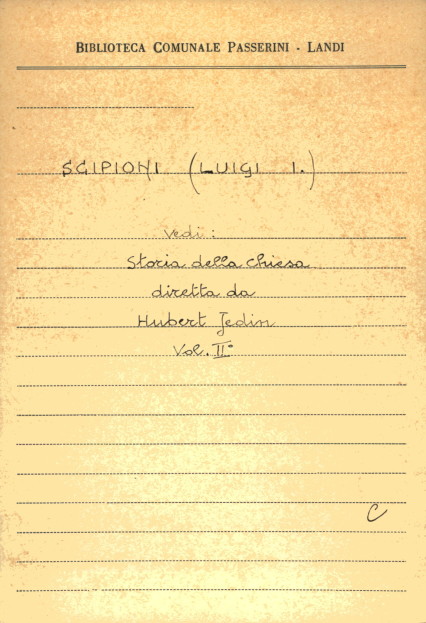 BIBLIOTECA COMUNALE PASSERINI - LANDI
SCIPIONI (LUIGI I.)
Vedi:
Storia della Chiesa
diretta da
Hubert Jedin
Vol. II°
C